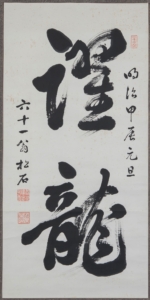 明治甲辰元旦
躍龍
六十一翁松石